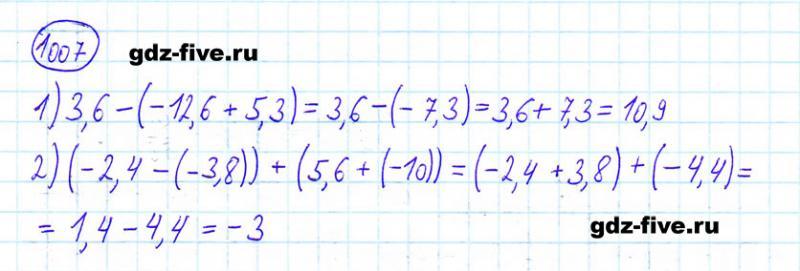 1007 gdz-five.ru
1) 3,6 - (-12,6 + 5,3) = 3,6 - (- 7,3) = 3,6 + 7,3 = 10,9
2) (-2,4 - (-3,8)) + (5,6 + (-10)) = (-2,4 + 3,8) + (-4,4) =
= 1,4 - 4,4 = -3
gdz-five.ru